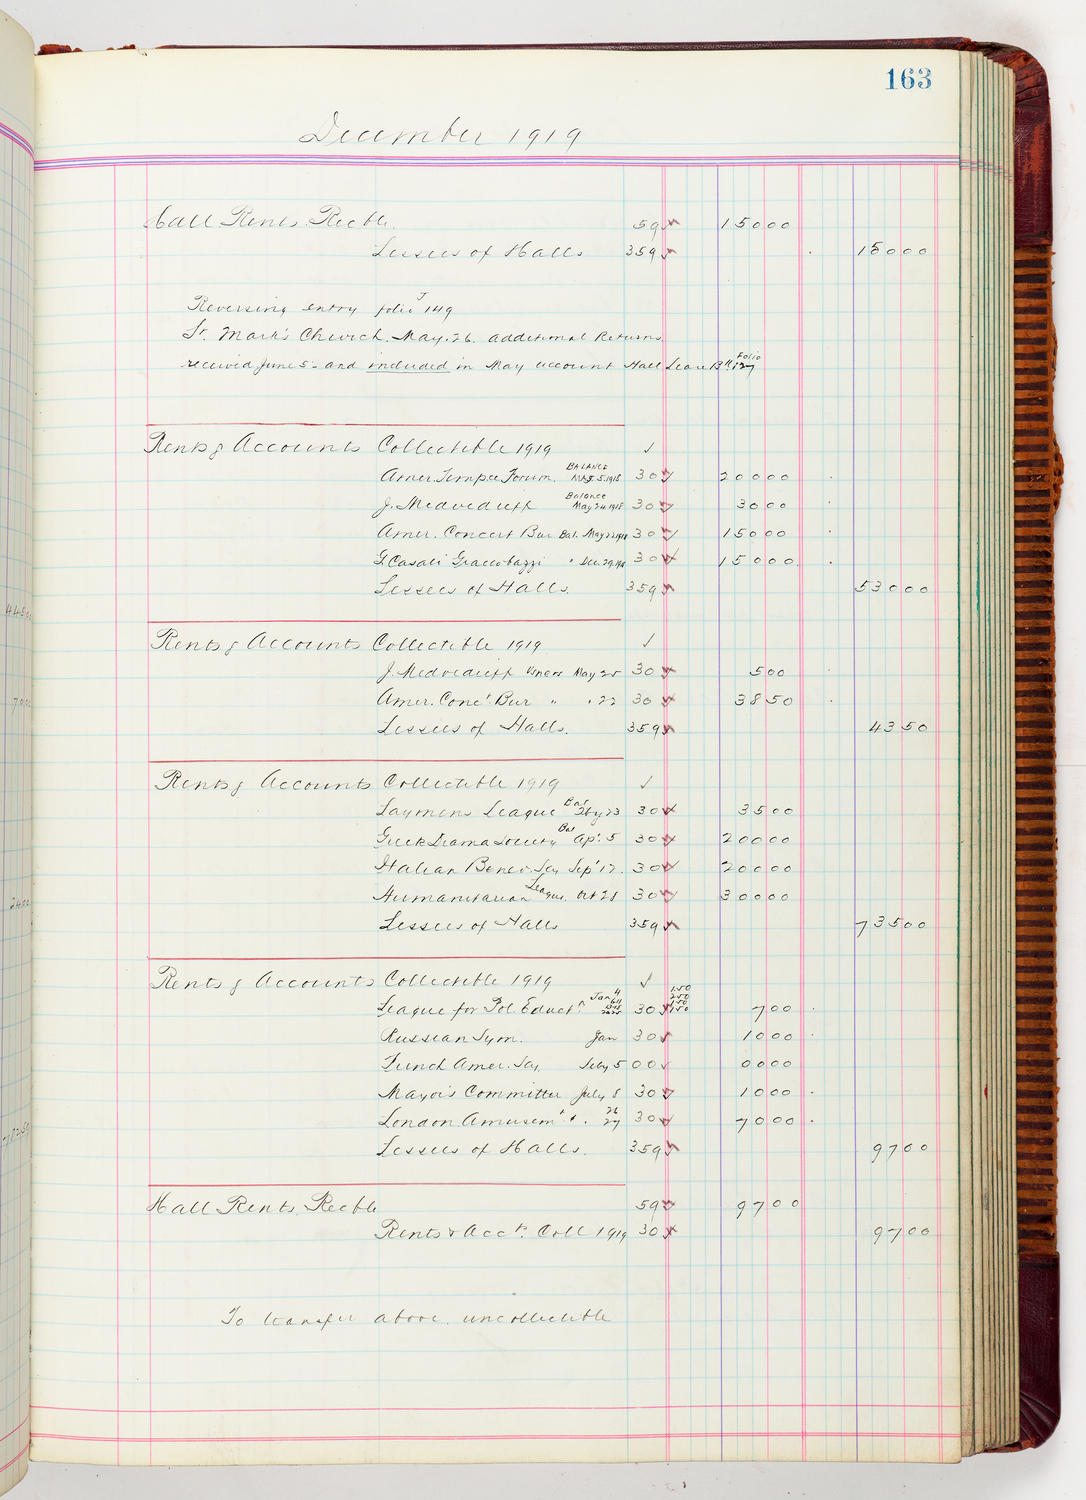 163
December 1919
Hall Rents Recble. 59 15000
Lessees of Halls 359 15000
Reversing entry folio J 149
St. Mark's Church. May. 26. additional Returns
received June 5 - and included in May account Hall Lease Folio 127
Rents & Accounts Collectible 1919 ✓
Amer. Temp.ce Forum. BALANCE MAY. 5. 1918 30 20000
J. Medvedieff Balance May 24 1918 30 3000
Amer. Concert Bur Bal. May 22 1918 30 15000
G. Casali " Dec. 29, 1918 30 15000
Lessees of Halls. 359 53000
Rents & Accounts Collectible 1919 ✓
J. Medvedieff Ushers May 25 30 500
Amer. Conct. Bur " " 22 30 3850
Lessees of Halls. 359 4350
Rents & Accounts Collectible 1919 ✓
Laymens League Bal Feby 23 30 3500
Greek Drama Society Bal Ap. 5 30 20000
Italian Benev. Soy Sep 17. 30 20000
Humanitarian League. Oct 28 30 30000
Lessees of Halls 359 73500
Rents & Accounts Collectible 1919 ✓
League for Pol Educt.n Jan 4 30 150 250 150 150 700
Russian Sym. Jan 30 1000
French Amer. Soy Feby 5 00 0000
Mayor's Committee July 8 30 1000
London Amusemt. " . 26 27 30 7000
Lessees of Halls. 359 9700
Hall Rents. Recble 59 9700
Rents & Accts. Coll 1919 30 9700
To transfer above uncollectible